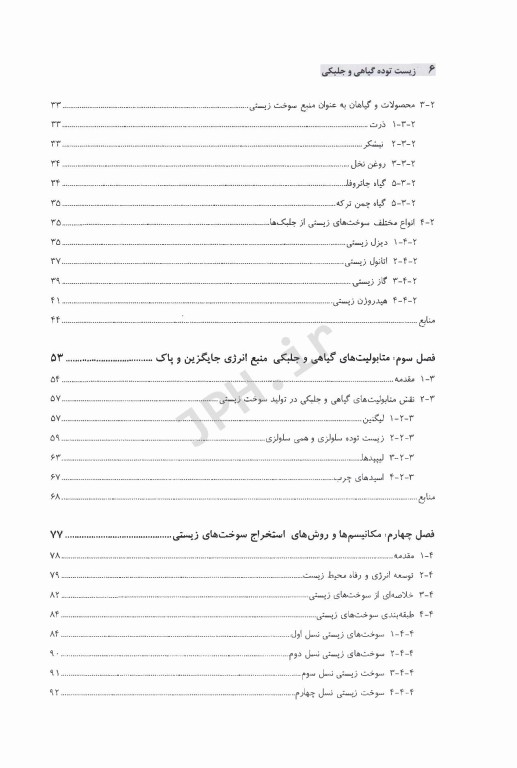 ۶ زیست توده گیاهی و جلبکی
۳-۲ محصولات و گیاهان به عنوان منبع سوخت زیستی ۳۳
۱-۳-۲ ذرت ۳۳
۲-۳-۲ نیشکر ۳۳
۳-۳-۲ روغن نخل ۳۴
۵-۳-۲ گیاه جاتروفا ۳۴
۵-۳-۲ گیاه چمن ترکه ۳۵
۴-۲ انواع مختلف سوخت‌های زیستی از جلبک‌ها ۳۵
۱-۴-۲ دیزل زیستی ۳۵
۲-۴-۲ اتانول زیستی ۳۷
۳-۴-۲ گاز زیستی ۳۹
۴-۴-۲ هیدروژن زیستی ۴۱
منابع ۴۴
فصل سوم: متابولیت‌های گیاهی و جلبکی منبع انرژی جایگزین و پاک ۵۳
۱-۳ مقدمه ۵۴
۲-۳ نقش متابولیت‌های گیاهی و جلبکی در تولید سوخت زیستی ۵۷
۱-۲-۳ لیگنین ۵۷
۲-۲-۳ زیست توده سلولزی و همی سلولزی ۵۹
۳-۲-۳ لیپیدها ۶۳
۴-۲-۳ اسیدهای چرب ۶۷
منابع ۶۸
فصل چهارم: مکانیسم‌ها و روش‌های استخراج سوخت‌های زیستی ۷۷
۱-۴ مقدمه ۷۸
۲-۴ توسعه انرژی و رفاه محیط زیست ۷۹
۳-۴ خلاصه‌ای از سوخت‌های زیستی ۸۲
۴-۴ طبقه‌بندی سوخت‌های زیستی ۸۴
۱-۴-۴ سوخت‌های زیستی نسل اول ۸۴
۲-۴-۴ سوخت‌های زیستی نسل دوم ۹۰
۳-۴-۴ سوخت زیستی نسل سوم ۹۱
۴-۴-۴ سوخت زیستی نسل چهارم ۹۲
JPH.ir